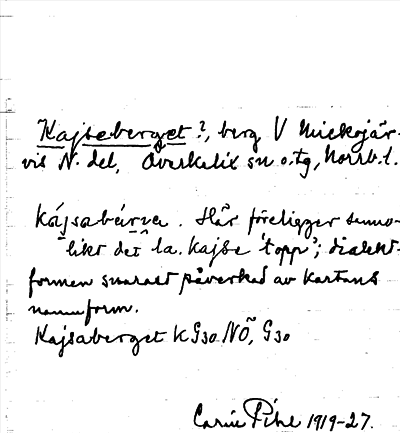 Kajseberget?, berg V Mickojär-
vis N. del, Överkalix sn o. tg, Norrb. l.
kájsabárrɐ. Här föreligger sanno-
likt det la. kajse 'topp'; dialekt-
formen snarast påverkad av kartans
namnform.
Kajsaberget K G30 NÖ, G30
Carin Pihl 1919-27.